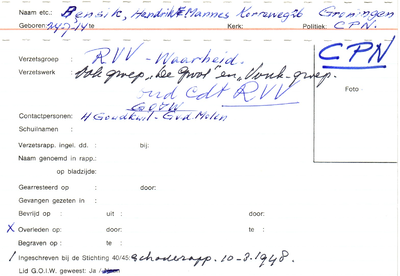 Naam etc.: Bensik, Hendrik Mannes Korreweg Groningen
Geboren: 24-7-14 te Kerk: Politiek: CPN.
CPN
Verzetsgroep : RVV - Waarheid.
Verzetswerk : Ook groep „De Groot" en „Vonk-groep.
ond Cdt RVV
Foto
Contactpersonen: H Goudkuil - Gvd Molen
Schuilnamen :
Verzetsrapp. ingel. dd. : bij:
Naam genoemd in rapp.:
op bladzijde:
Gearresteerd op : door:
Gevangen gezeten in :
Bevrijd op : uit : door:
X Overleden op: door: te :
Begraven op : te :
/ Ingeschreven bij de Stichting 40/45: schaderapp. 10-8-1948.
Lid G.O.I.W. geweest: Ja /